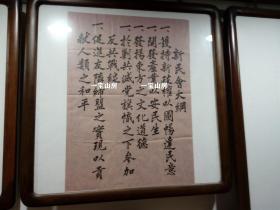 新民會大綱
一護持新政權以圖暢達民意
一開發產業以安民生
一發揚東方之文化道德
一於剿共滅黨旗幟之下參加
反共戰線
一促進友隣締盟之實現以貢
獻人類之和平
一宝山房
一宝山房